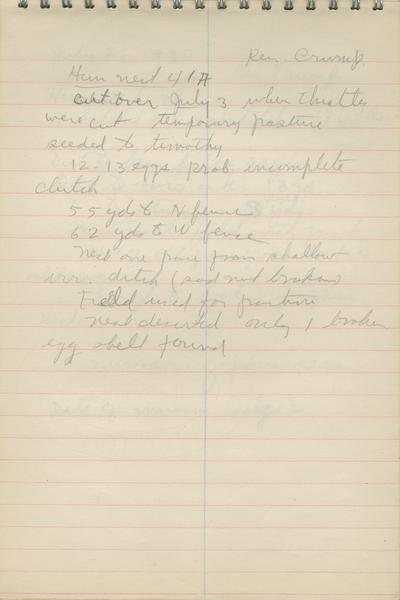 Rev. Crump.
Hun nest 4/1A
cut over July 3 when thistles
were cut temporary pasture
seeded to timothy
12-13 eggs prob incomplete
clutch
55 yds to N fence
62 yds to W fence
Nest one pace from shallow
irr. ditch (sod not broken)
Field used for pasture
Nest deserted only 1 broken
egg shell found